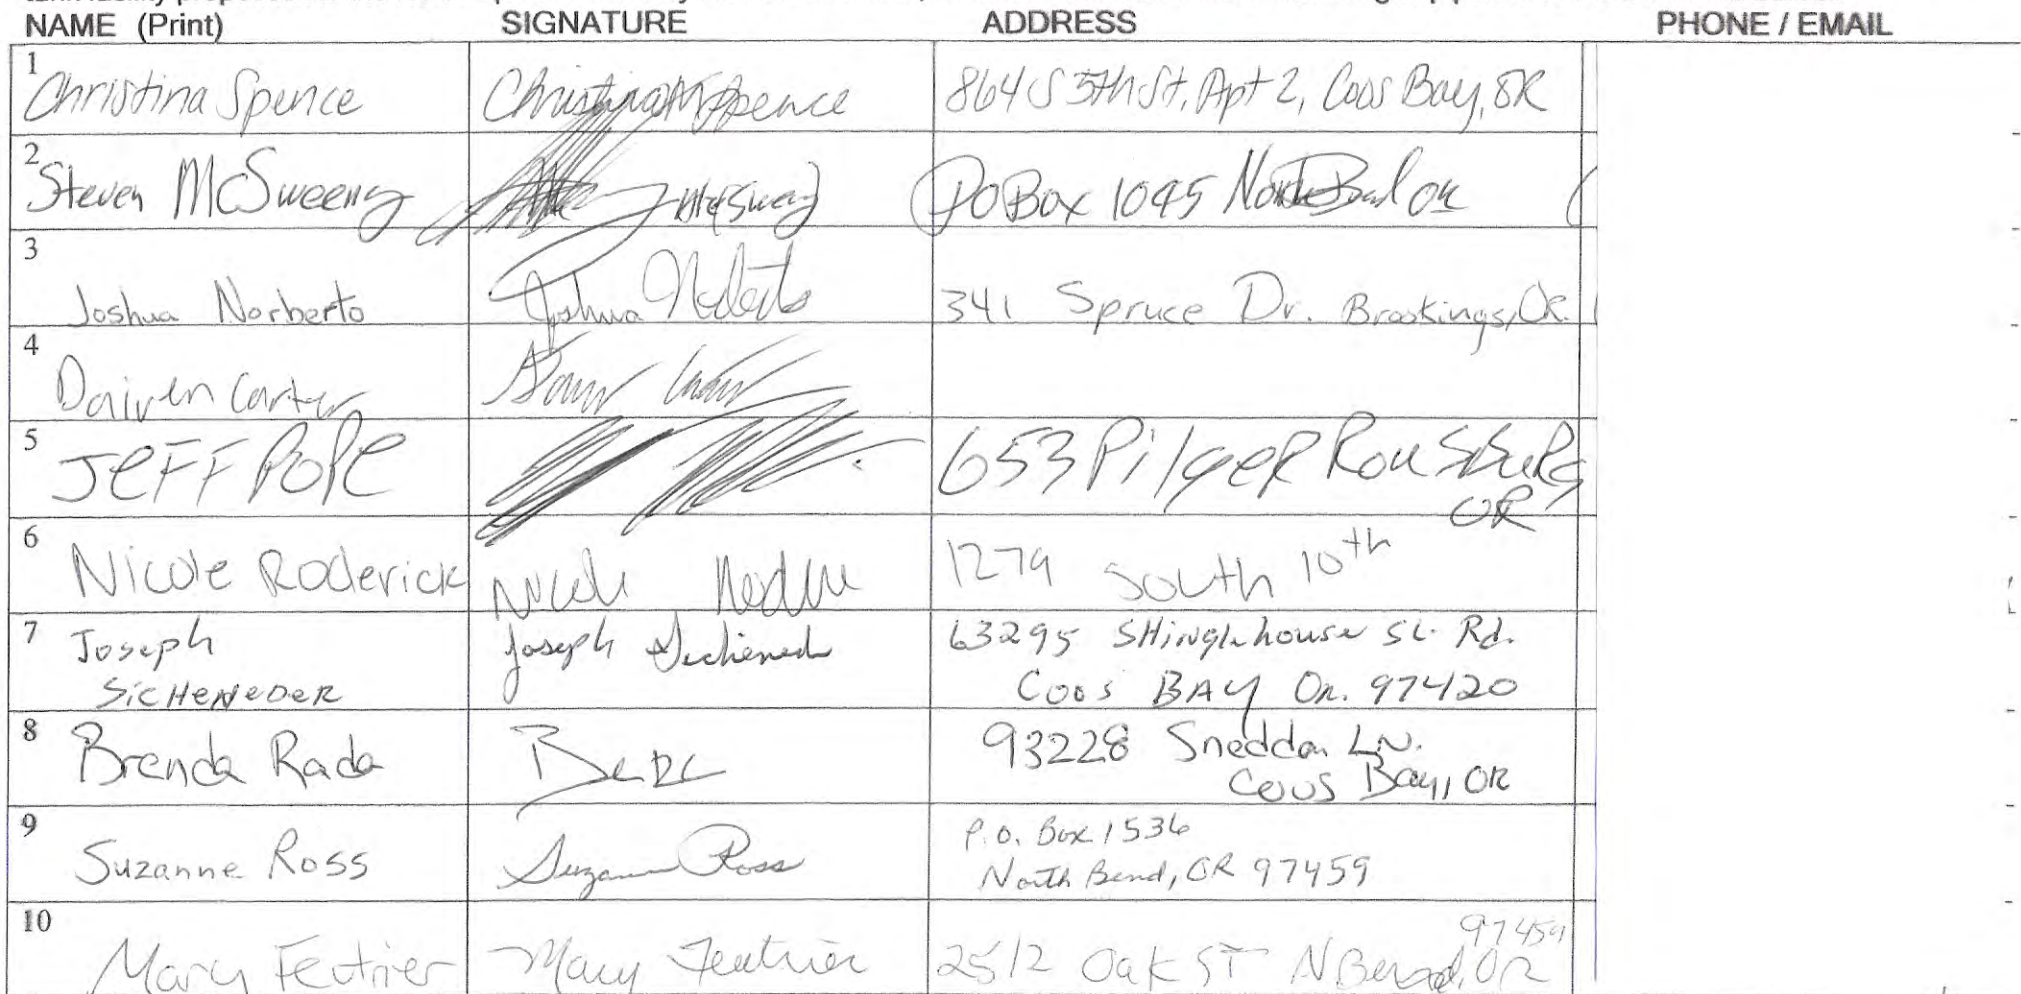 NAME (Print) SIGNATURE ADDRESS PHONE / EMAIL
1 Christina Spence Christina M Spence 864 S 5th St, Apt 2, Coos Bay, OR
2 Steven McSweeny McSweeny PO Box 1095 North Bend OR
3 Joshua Norberto Joshua Norberto 341 Spruce Dr. Brookings, OR.
4 Dairren Carter
5 JEFF POPE 653 Pilger
OR
6 Nicole Roderick Nicole 1279 South 10th
7 Joseph Joseph 63295 SHinglehouse SL. Rd.
SicHeNeDeR Coos BAY Or. 97420
8 Brenda Rada 93228 Sneddon LN.
Coos Bay, OR
9 P.O. Box 1536
Suzanne Ross Suzanne Ross North Bend, OR 97459
10 97459
Mary Feutrier Mary Feutrier 2512 Oak ST N Bend, OR